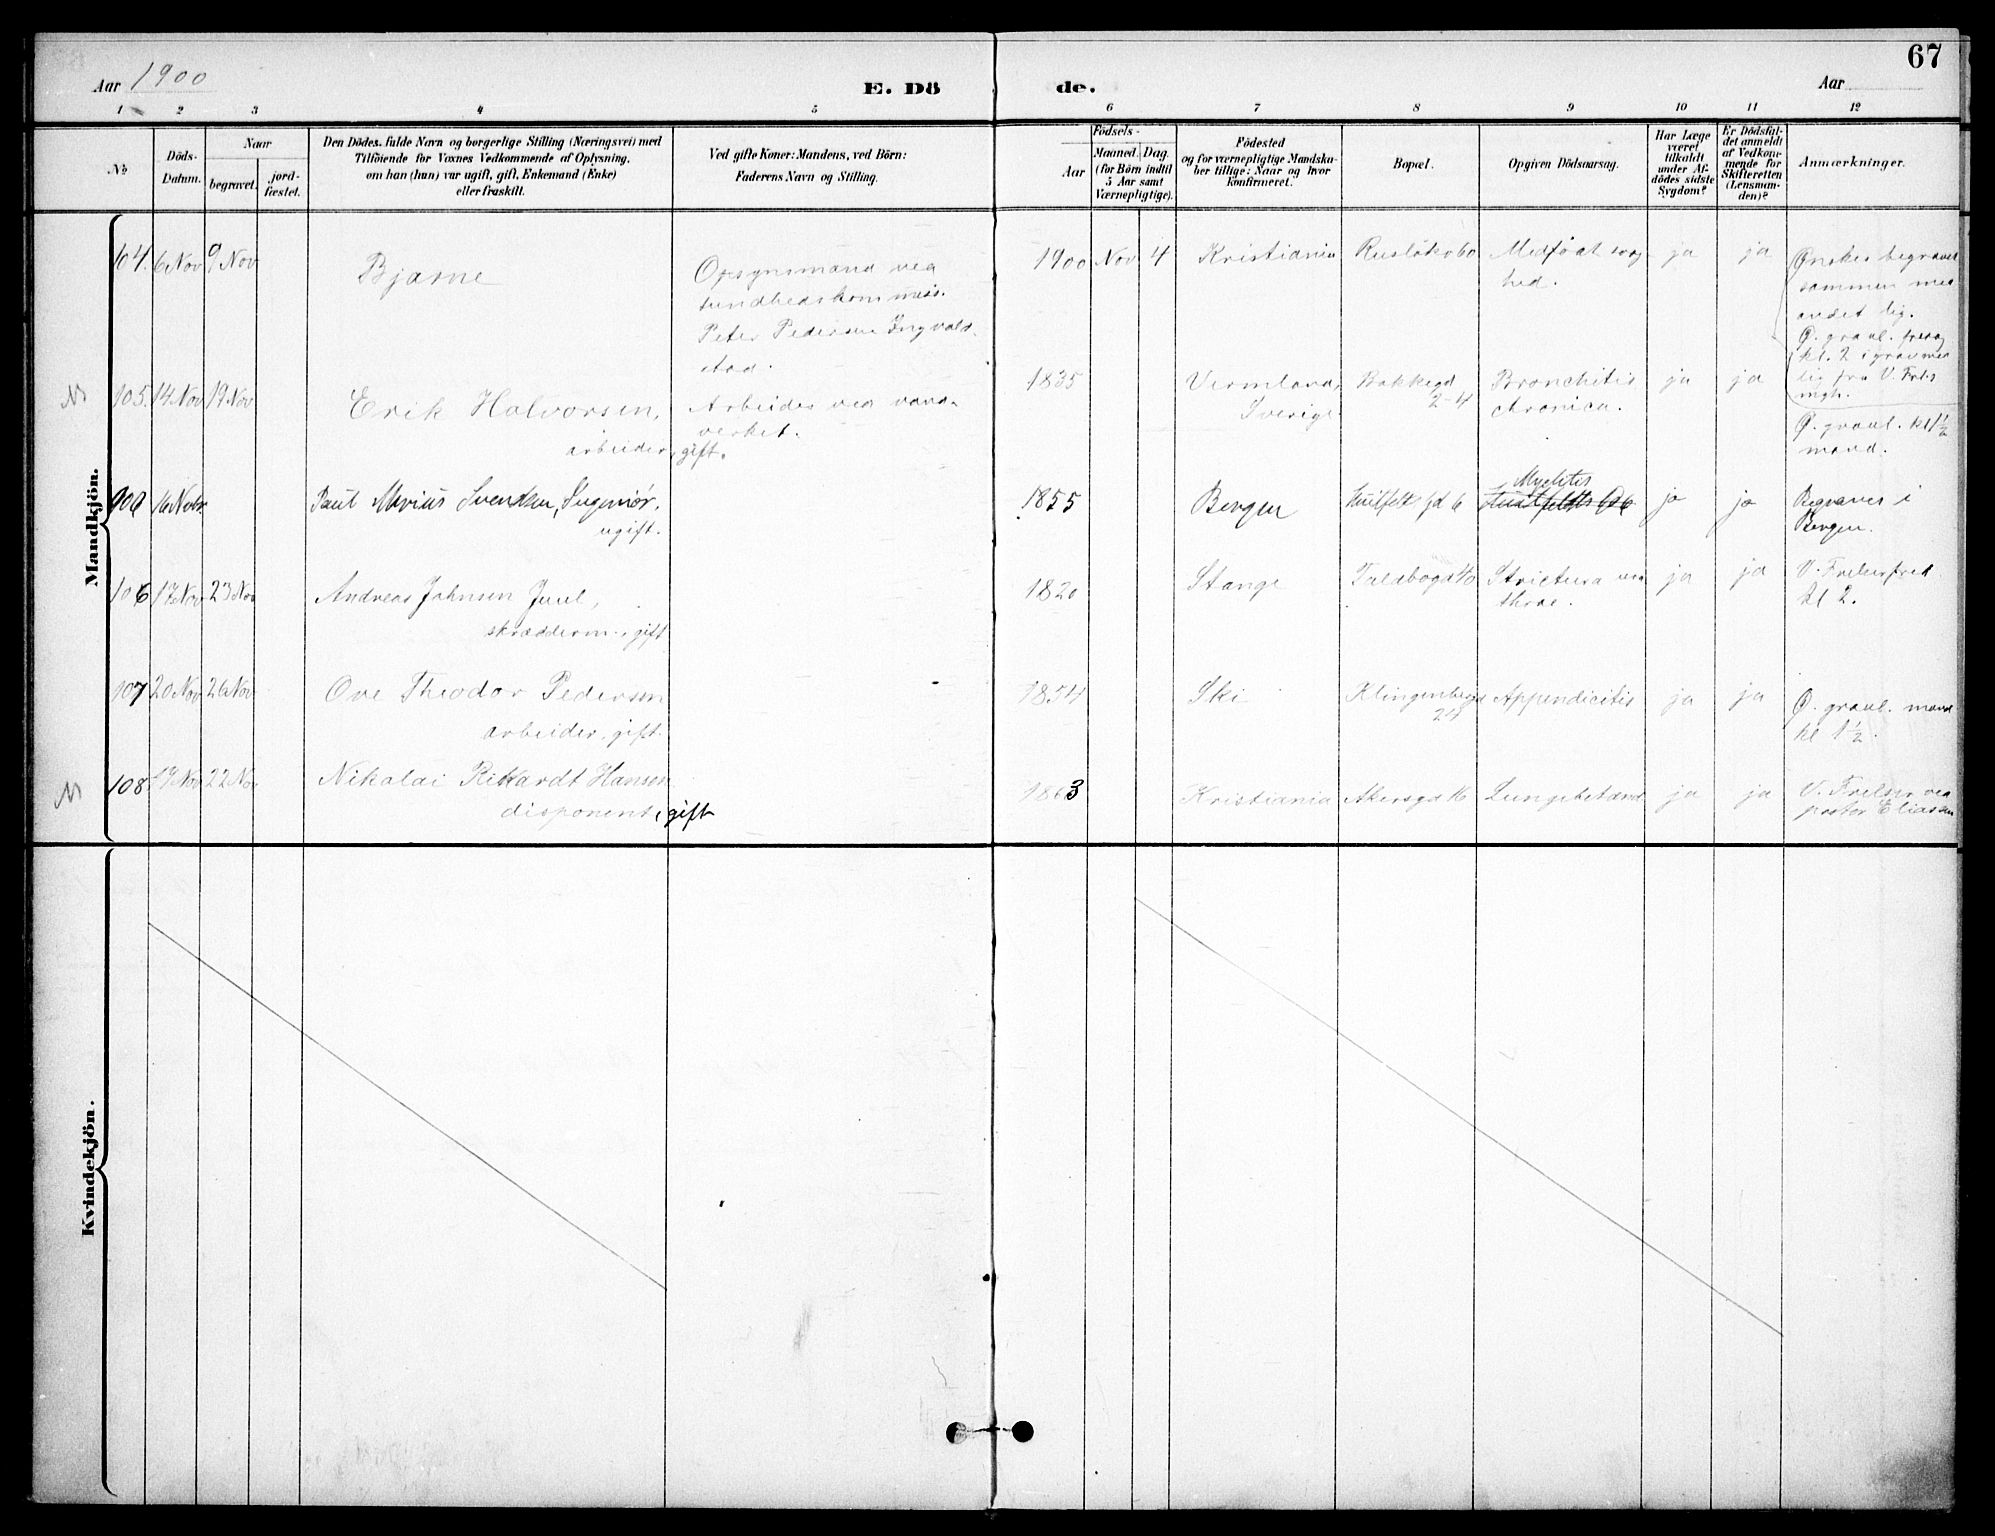 67
Aar 1900
E. Dö
de.
Aar
1 2 3 4 5 6 7 8 9 10 11 12
№
Döds-
Datum.
Naar
begravet.
jord-
fæstet.
Den Dödes fulde Navn og borgerlige Stilling (Næringsvei) med
Tilföiende for Voxnes Vedkommende af Oplysning,
om han (hun) var ugift, gift, Enkemand (Enke)
eller fraskilt.
Ved gifte Koner: Mandens, ved Börn:
Faderens Navn og Stilling.
Födsels-
Aar
Maaned. Dag.
(for Börn indtil
5 Aar samt
Værnepligtige).
Födested
og for værnepligtige Mandska-
ber tillige: Naar og hvor
konfirmeret.
Bopæl.
Opgiven Dödsaarsag.
Har Læge
været
tilkaldt
under Af-
dödes sidste
Sygdom?
Er Dödsfal-
det anmeldt
af Vedkom-
mende for
Skifteretten
(Lensman-
den)?
Anmærkninger.
Mandkjön.
104. 6 Nov 9 Nov
Bjarne
Opsynsmand ved
sundhedskommis.
Peter Pedersen Ingvald-
stad.
1900 Nov 4
Kristiania
Rusløkv 60
Medfødt svag
hed.
ja ja
Ønskes begravet
sammen med
andet lig.
Ø. gravl. fredag
kl. 2 i grav med
lig fra V. Frls
mgh.
105. 14 Nov 19 Nov
Erik Halvorsen,
arbeider, gift.
Arbeider ved vand-
verket.
1835
Vermland,
Sverige
Bakkegd
2-4
Bronchitis
chronica.
ja ja
Ø. gravl. kl 1½
mand.
106 16 Nvbr.
Paul Marius Svendsen, Ingeniør,
ugift.
1855
Bergen
Huitfelt gd 6
Myelitis
Huitfeldts Gd 6
ja ja
Begraves i
Bergen.
106 17 Nov 23 Nov
Andreas Johnsen Juul,
skræderm., gift
1820
Stange
Calebogd 40
Strictura ure
thrae.
ja ja
V. Frelser fred
kl 2.
107 20 Nov 26 Nov
Ove Theodor Pedersen
arbeider, gift.
1854
Ski
Klingenbergd
24
Appendicitis
ja ja
Ø. gravl. mand
kl 1½.
108. 19 Nov 22 Nov
Nikolai Rikardt Hansen
disponent, gift
1863
Kristiania
Akersgd 16
Lungebetænd
ja ja
V. Frelser ved
pastor Eliassen
Kvindekjön.